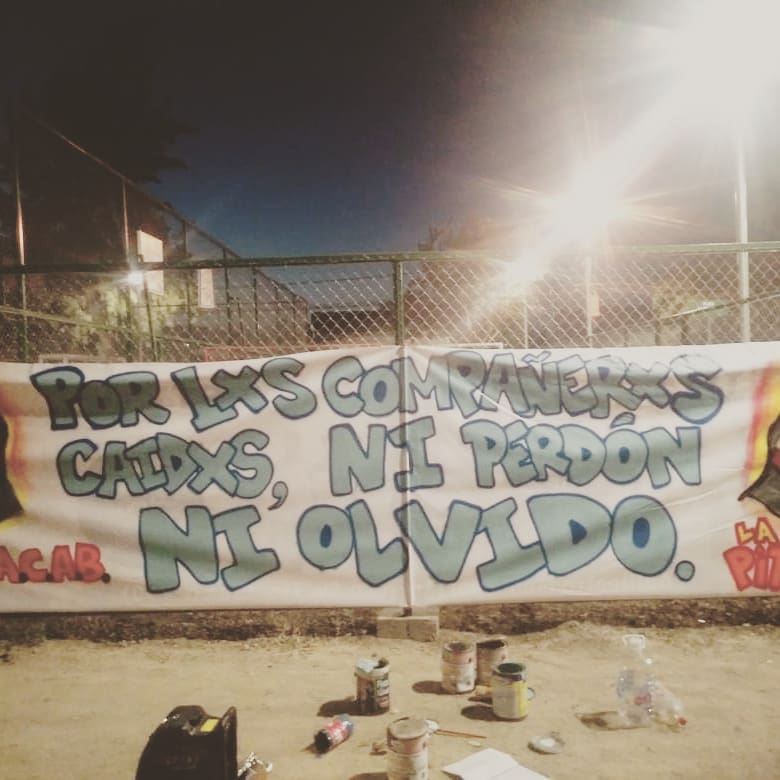 POR LXS COMPAÑERXS
CAIDXS, NI PERDÓN
NI OLVIDO.
A.C.A.B.
LA